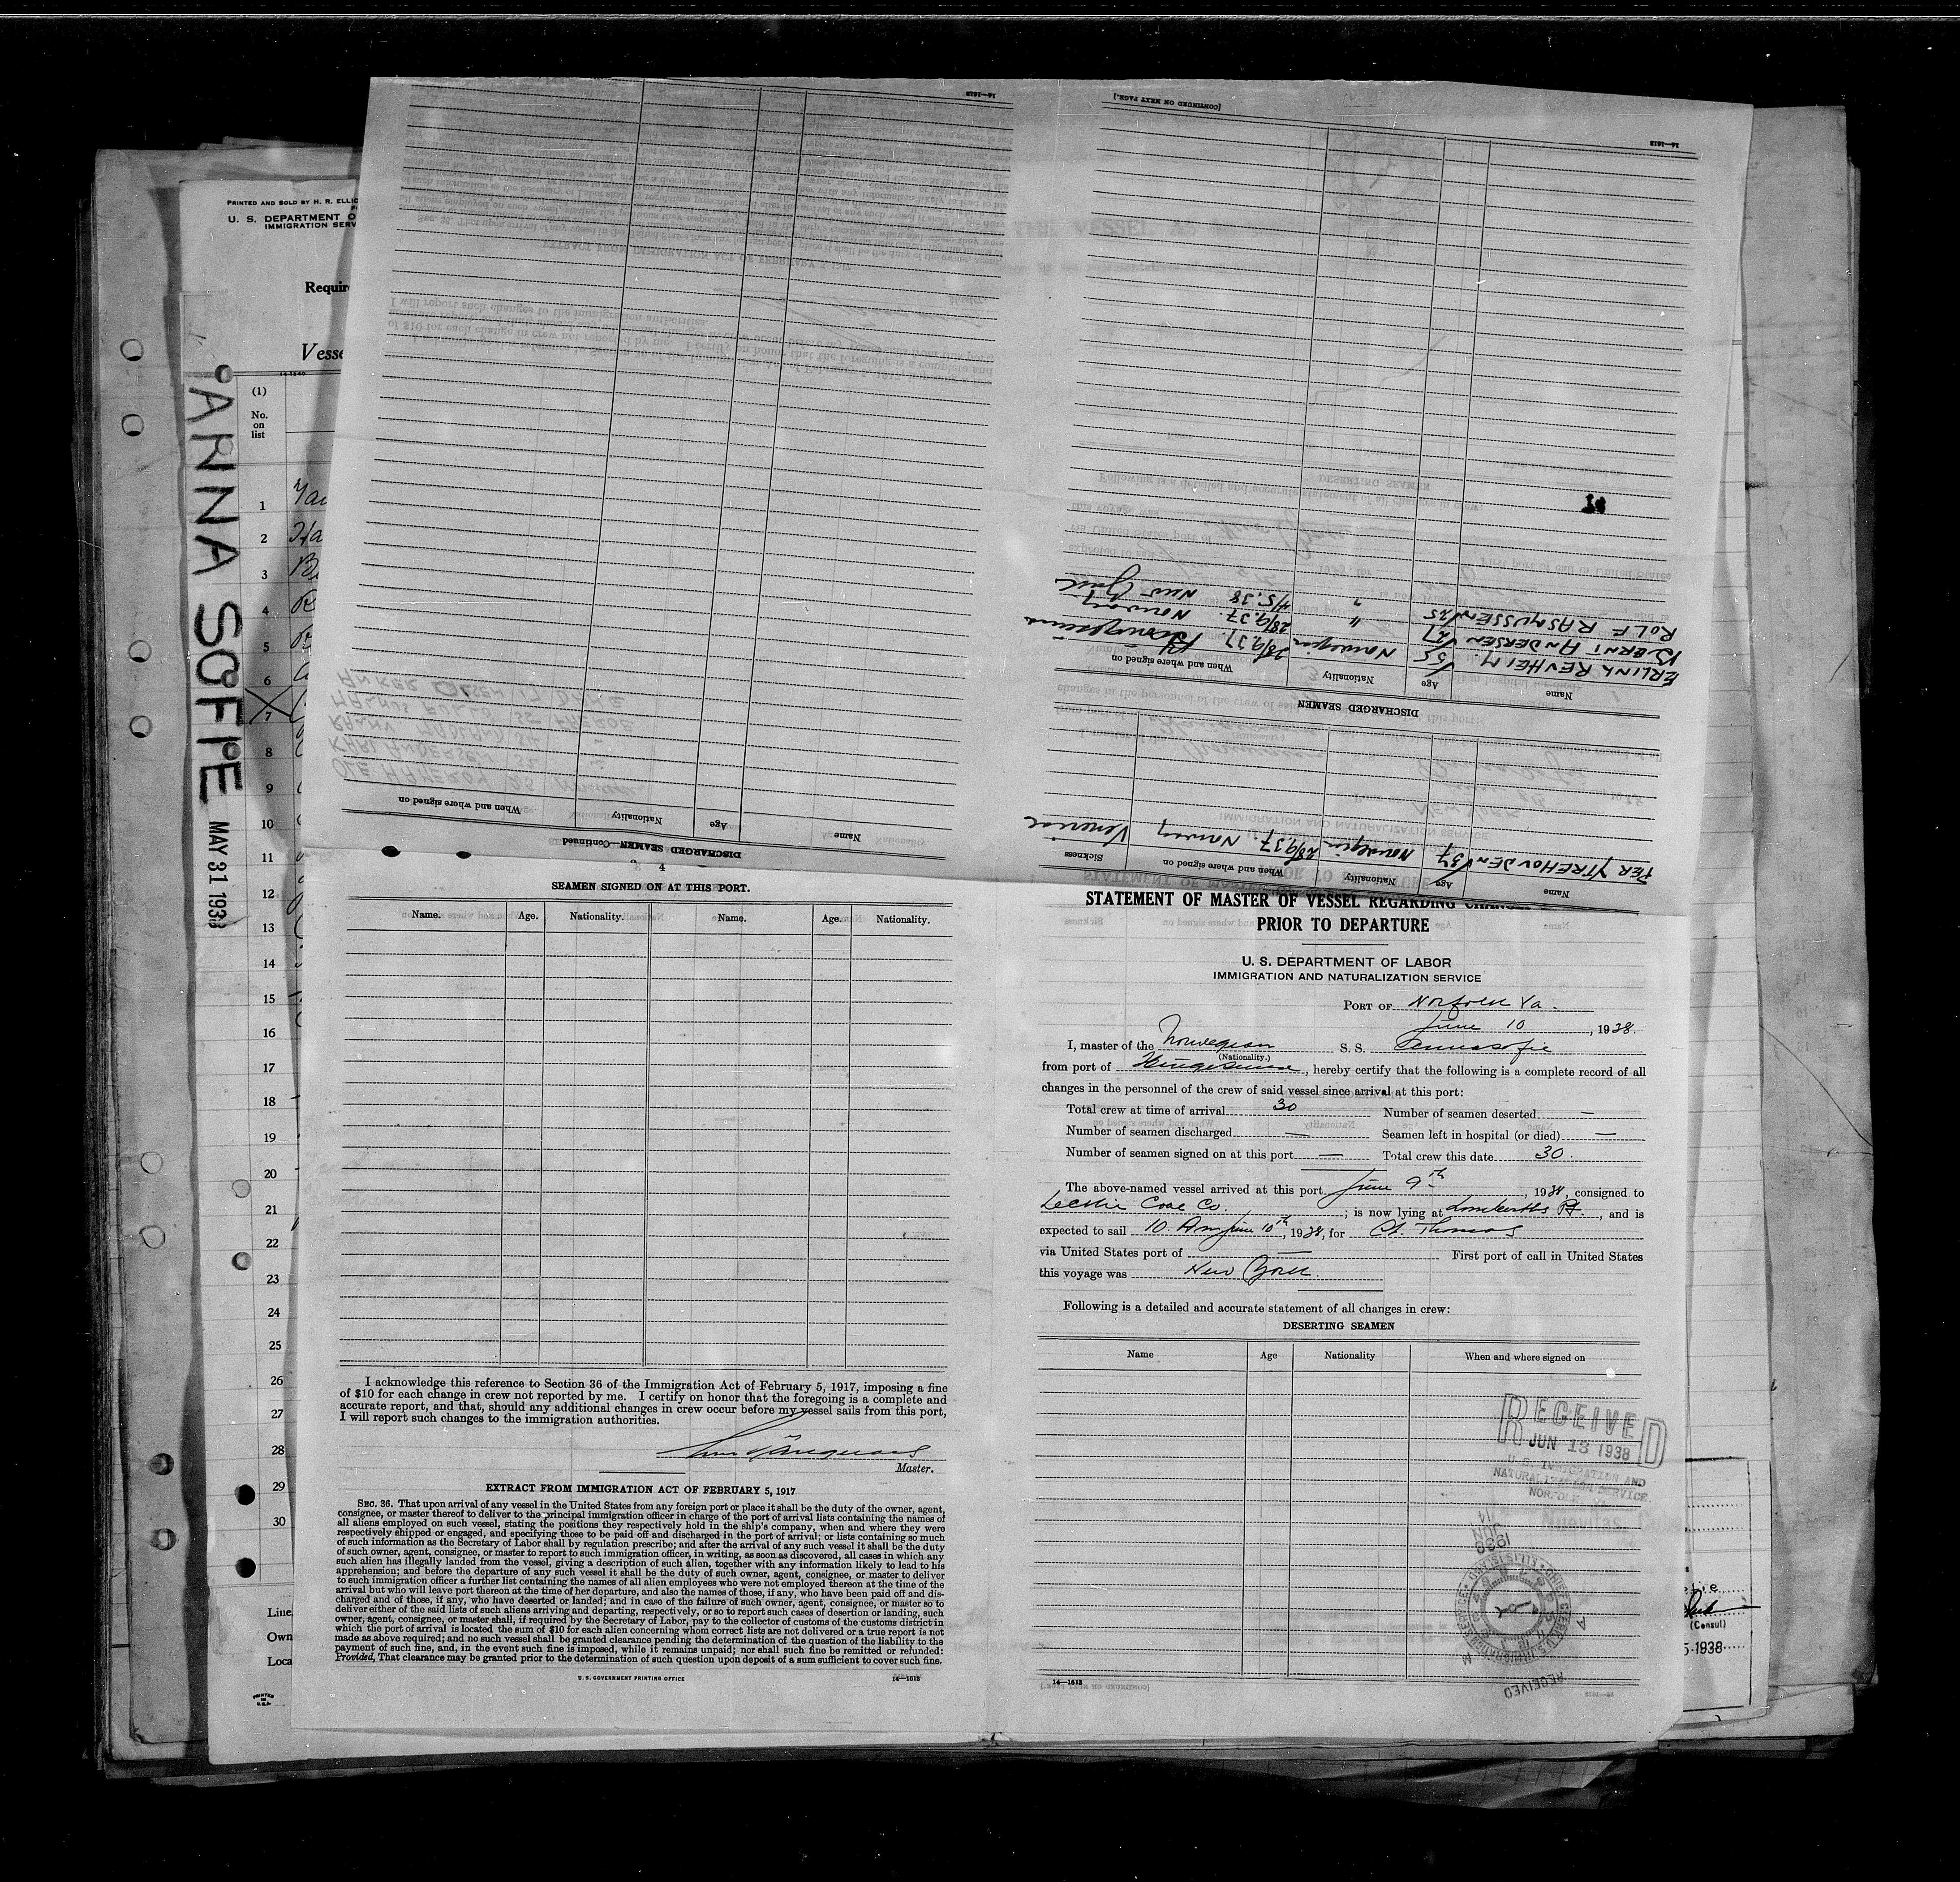 PRINTED AND SOLD BY H. R. ELLIC
U. S. DEPARTMENT O
IMMIGRATION SERV
Requir
Vesse
(1)
No.
on
list
1
2
3
4
5
6
7
8
9
10
11
12
13
14
15
16
17
18
19
20
21
22
23
24
25
26
27
28
29
30
Line
Own
Loca
PRINTED
IN
U.S.A.
ANNA SOFIE MAY 31 1938
14—1613
DISCHARGED SEAMEN—Continued
Name Age Nationality When and where signed on
[CONTINUED ON NEXT PAGE.]
14—1613
Name Age Nationality When and where signed on Sickness
PER YTREHOVDEN 37 Norwegian 28/9.37. Norway Venereal
DISCHARGED SEAMEN
Name Age Nationality When and where signed on
ERLING REVHEIM 55 Norwegian 28/9.37
BERNT ANDERSEN 27 " 28/9.37. Norway
ROLF RASMUSSEN 25 " 4/5.38 New York
OLE HAMEROY
KARL ANDERSEN 32
RAGNV MADLAND
MAGNUS
ANKER OLSEN 17
4
SEAMEN SIGNED ON AT THIS PORT.
Name. Age. Nationality. Name. Age. Nationality.
I acknowledge this reference to Section 36 of the Immigration Act of February 5, 1917, imposing a fine
of $10 for each change in crew not reported by me. I certify on honor that the foregoing is a complete and
accurate report, and that, should any additional changes in crew occur before my vessel sails from this port,
I will report such changes to the immigration authorities.
Master.
EXTRACT FROM IMMIGRATION ACT OF FEBRUARY 5, 1917
SEC. 36. That upon arrival of any vessel in the United States from any foreign port or place it shall be the duty of the owner, agent,
consignee, or master thereof to deliver to the principal immigration officer in charge of the port of arrival lists containing the names of
all aliens employed on such vessel, stating the positions they respectively hold in the ship's company, when and where they were
respectively shipped or engaged, and specifying those to be paid off and discharged in the port of arrival; or lists containing so much
of such information as the Secretary of Labor shall by regulation prescribe; and after the arrival of any such vessel it shall be the duty
of such owner, agent, consignee, or master to report to such immigration officer, in writing, as soon as discovered, all cases in which any
such alien has illegally landed from the vessel, giving a description of such alien, together with any information likely to lead to his
apprehension; and before the departure of any such vessel it shall be the duty of such owner, agent, consignee, or master to deliver
to such immigration officer a further list containing the names of all alien employees who were not employed thereon at the time of the
arrival but who will leave port thereon at the time of her departure, and also the names of those, if any, who have been paid off and dis-
charged and of those, if any, who have deserted or landed; and in case of the failure of such owner, agent, consignee, or master so to
deliver either of the said lists of such aliens arriving and departing, respectively, or so to report such cases of desertion or landing, such
owner, agent, consignee, or master shall, if required by the Secretary of Labor, pay to the collector of customs of the customs district in
which the port of arrival is located the sum of $10 for each alien concerning whom correct lists are not delivered or a true report is not
made as above required; and no such vessel shall be granted clearance pending the determination of the question of the liability to the
payment of such fine, and, in the event such fine is imposed, while it remains unpaid; nor shall such fine be remitted or refunded:
Provided, That clearance may be granted prior to the determination of such question upon deposit of a sum sufficient to cover such fine.
U. S. GOVERNMENT PRINTING OFFICE 14—1613
STATEMENT OF MASTER OF VESSEL REGARDING CHANGE
PRIOR TO DEPARTURE
U. S. DEPARTMENT OF LABOR
IMMIGRATION AND NATURALIZATION SERVICE
PORT OF Norfolk Va.
June 10, 1938.
I, master of the Norwegian S. S. Annasofie
(Nationality.)
from port of , hereby certify that the following is a complete record of all
changes in the personnel of the crew of said vessel since arrival at this port:
Total crew at time of arrival 30 Number of seamen deserted —
Number of seamen discharged — Seamen left in hospital (or died) —
Number of seamen signed on at this port — Total crew this date 30.
The above-named vessel arrived at this port June 9th, 1938, consigned to
Leckie Coal Co. ; is now lying at Lamberts Pt., and is
expected to sail 10 Am June 10th, 1938, for St. Thomas
via United States port of — First port of call in United States
this voyage was New York.
Following is a detailed and accurate statement of all changes in crew:
DESERTING SEAMEN
Name Age Nationality When and where signed on
RECEIVED
JUN 13 1938
U. S. IMMIGRATION AND
NATURALIZATION SERVICE
NORFOLK
Nuevitas, Cuba
14 JUN 1938
RECEIVED
14—1613
(Consul)
5-1938